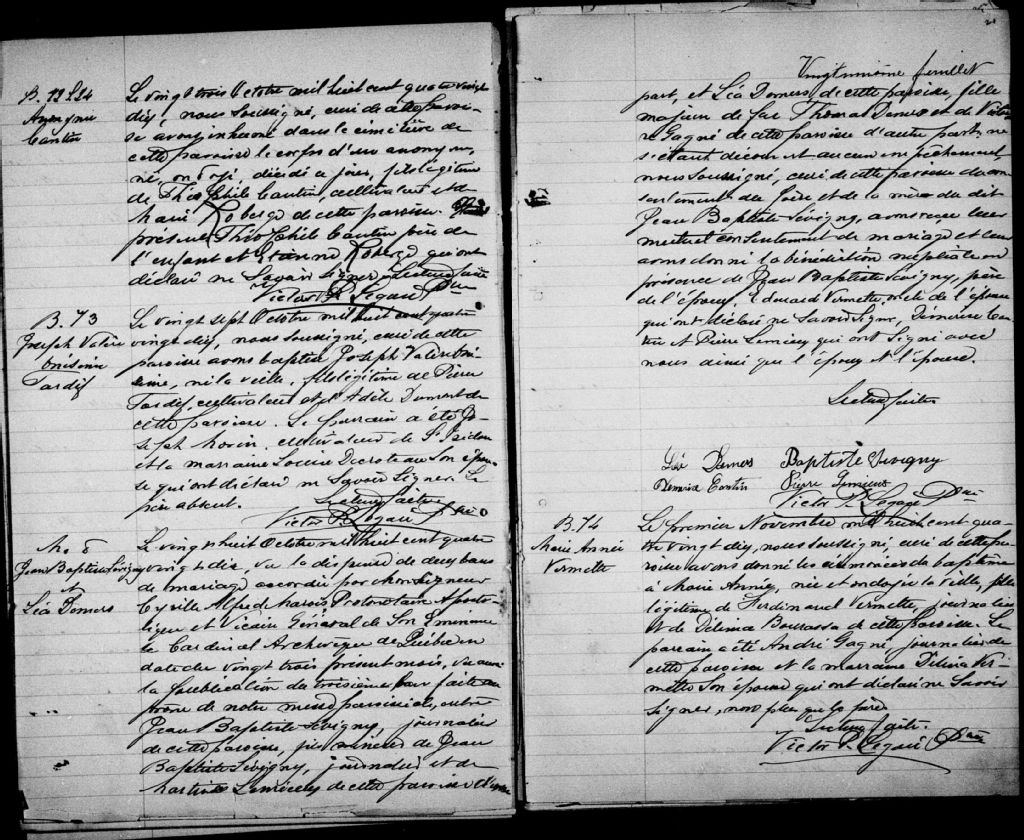 Le vingt trois Octobre mil huit cent quatre vingt
dix, nous soussigné, curé de cette parois-
se avons inhumé dans le cimetière de
cette paroisse le corps d'un anonyme,
né, décédé, fils légitime
de Théophile Cantin, cultivateur et de
Marie Roberge de cette paroisse.
présents Théophile Cantin père de
l'enfant et Etienne Roberge qui ont
déclaré ne savoir signer. Lecture faite
Victor P. Légaré Ptre
B. 73
Joseph Valère
Onésime
Tardif
Le vingt sept Octobre mil huit cent quatre
vingt dix, nous soussigné, curé de cette
paroisse avons baptisé Joseph Valère Oné-
sime, né la veille, fils légitime de Pierre
Tardif, cultivateur et d'Adèle Dumont de
cette paroisse. Le parrain a été Jo-
seph Morin, cultivateur de St Isidore
et la marraine Louise Decroteau son épou-
se qui ont déclaré ne savoir signer. Le
père absent.
Lecture faite
Victor P. Légaré Ptre
M. 8
Jean Baptiste Sévigny
&
Léa Demers
Le vingt huit Octobre mil huit cent quatre
vingt dix, vu la dispense de deux bans
de mariage accordée par Monseigneur
Cyrille Alfred Marois Protonotaire Aposto-
lique et Vicaire Général de Son Eminence
le Cardinal Archevêque de Québec en
date du vingt trois présent mois, vu aussi
la publication du troisième ban faite au
prône de notre messe paroissiale, entre
Jean Baptiste Sévigny, journalier
de cette paroisse, fils mineur de Jean
Baptiste Sévigny, journalier et de
Lemieux de cette paroisse d'une
Vingtunième feuillet
part, et Léa Demers de cette paroisse, fille
majeure de feu Thomas Demers et de
Gagné de cette paroisse d'autre part; ne
s'étant découvert aucun empêchement,
nous soussigné, curé de cette paroisse du con-
sentement du père et de la mère du dit
Jean Baptiste Sévigny, avons reçu leur
mutuel consentement de mariage et leur
avons donné la bénédiction nuptiale en
présence de Jean Baptiste Sévigny, père
de l'époux, Edouard Vermette, oncle de l'épouse
qui ont déclaré ne savoir signer, Démerise Can-
tin et Pierre Lemieux qui ont signé avec
nous ainsi que l'époux et l'épouse.
Lecture faite
Léa Demers Baptiste Sévigny
Demerise Cantin Pierre Lemieux
Victor P. Légaré Ptre
B. 74
Marie Année
Vermette
Le premier Novembre mil huit cent qua-
tre vingt dix, nous soussigné, curé de cette pa-
roisse avons donné les cérémonies du baptême
à Marie Année, née et ondoyée la veille, fille
légitime de Ferdinand Vermette, journalier
et de Délima Bourassa de cette paroisse. Le
parrain a été André Gagné, journalier de
cette paroisse et la marraine Délima Ver-
mette son épouse qui ont déclaré ne savoir
signer, non plus que le père
Lecture faite
Victor P. Légaré Ptre